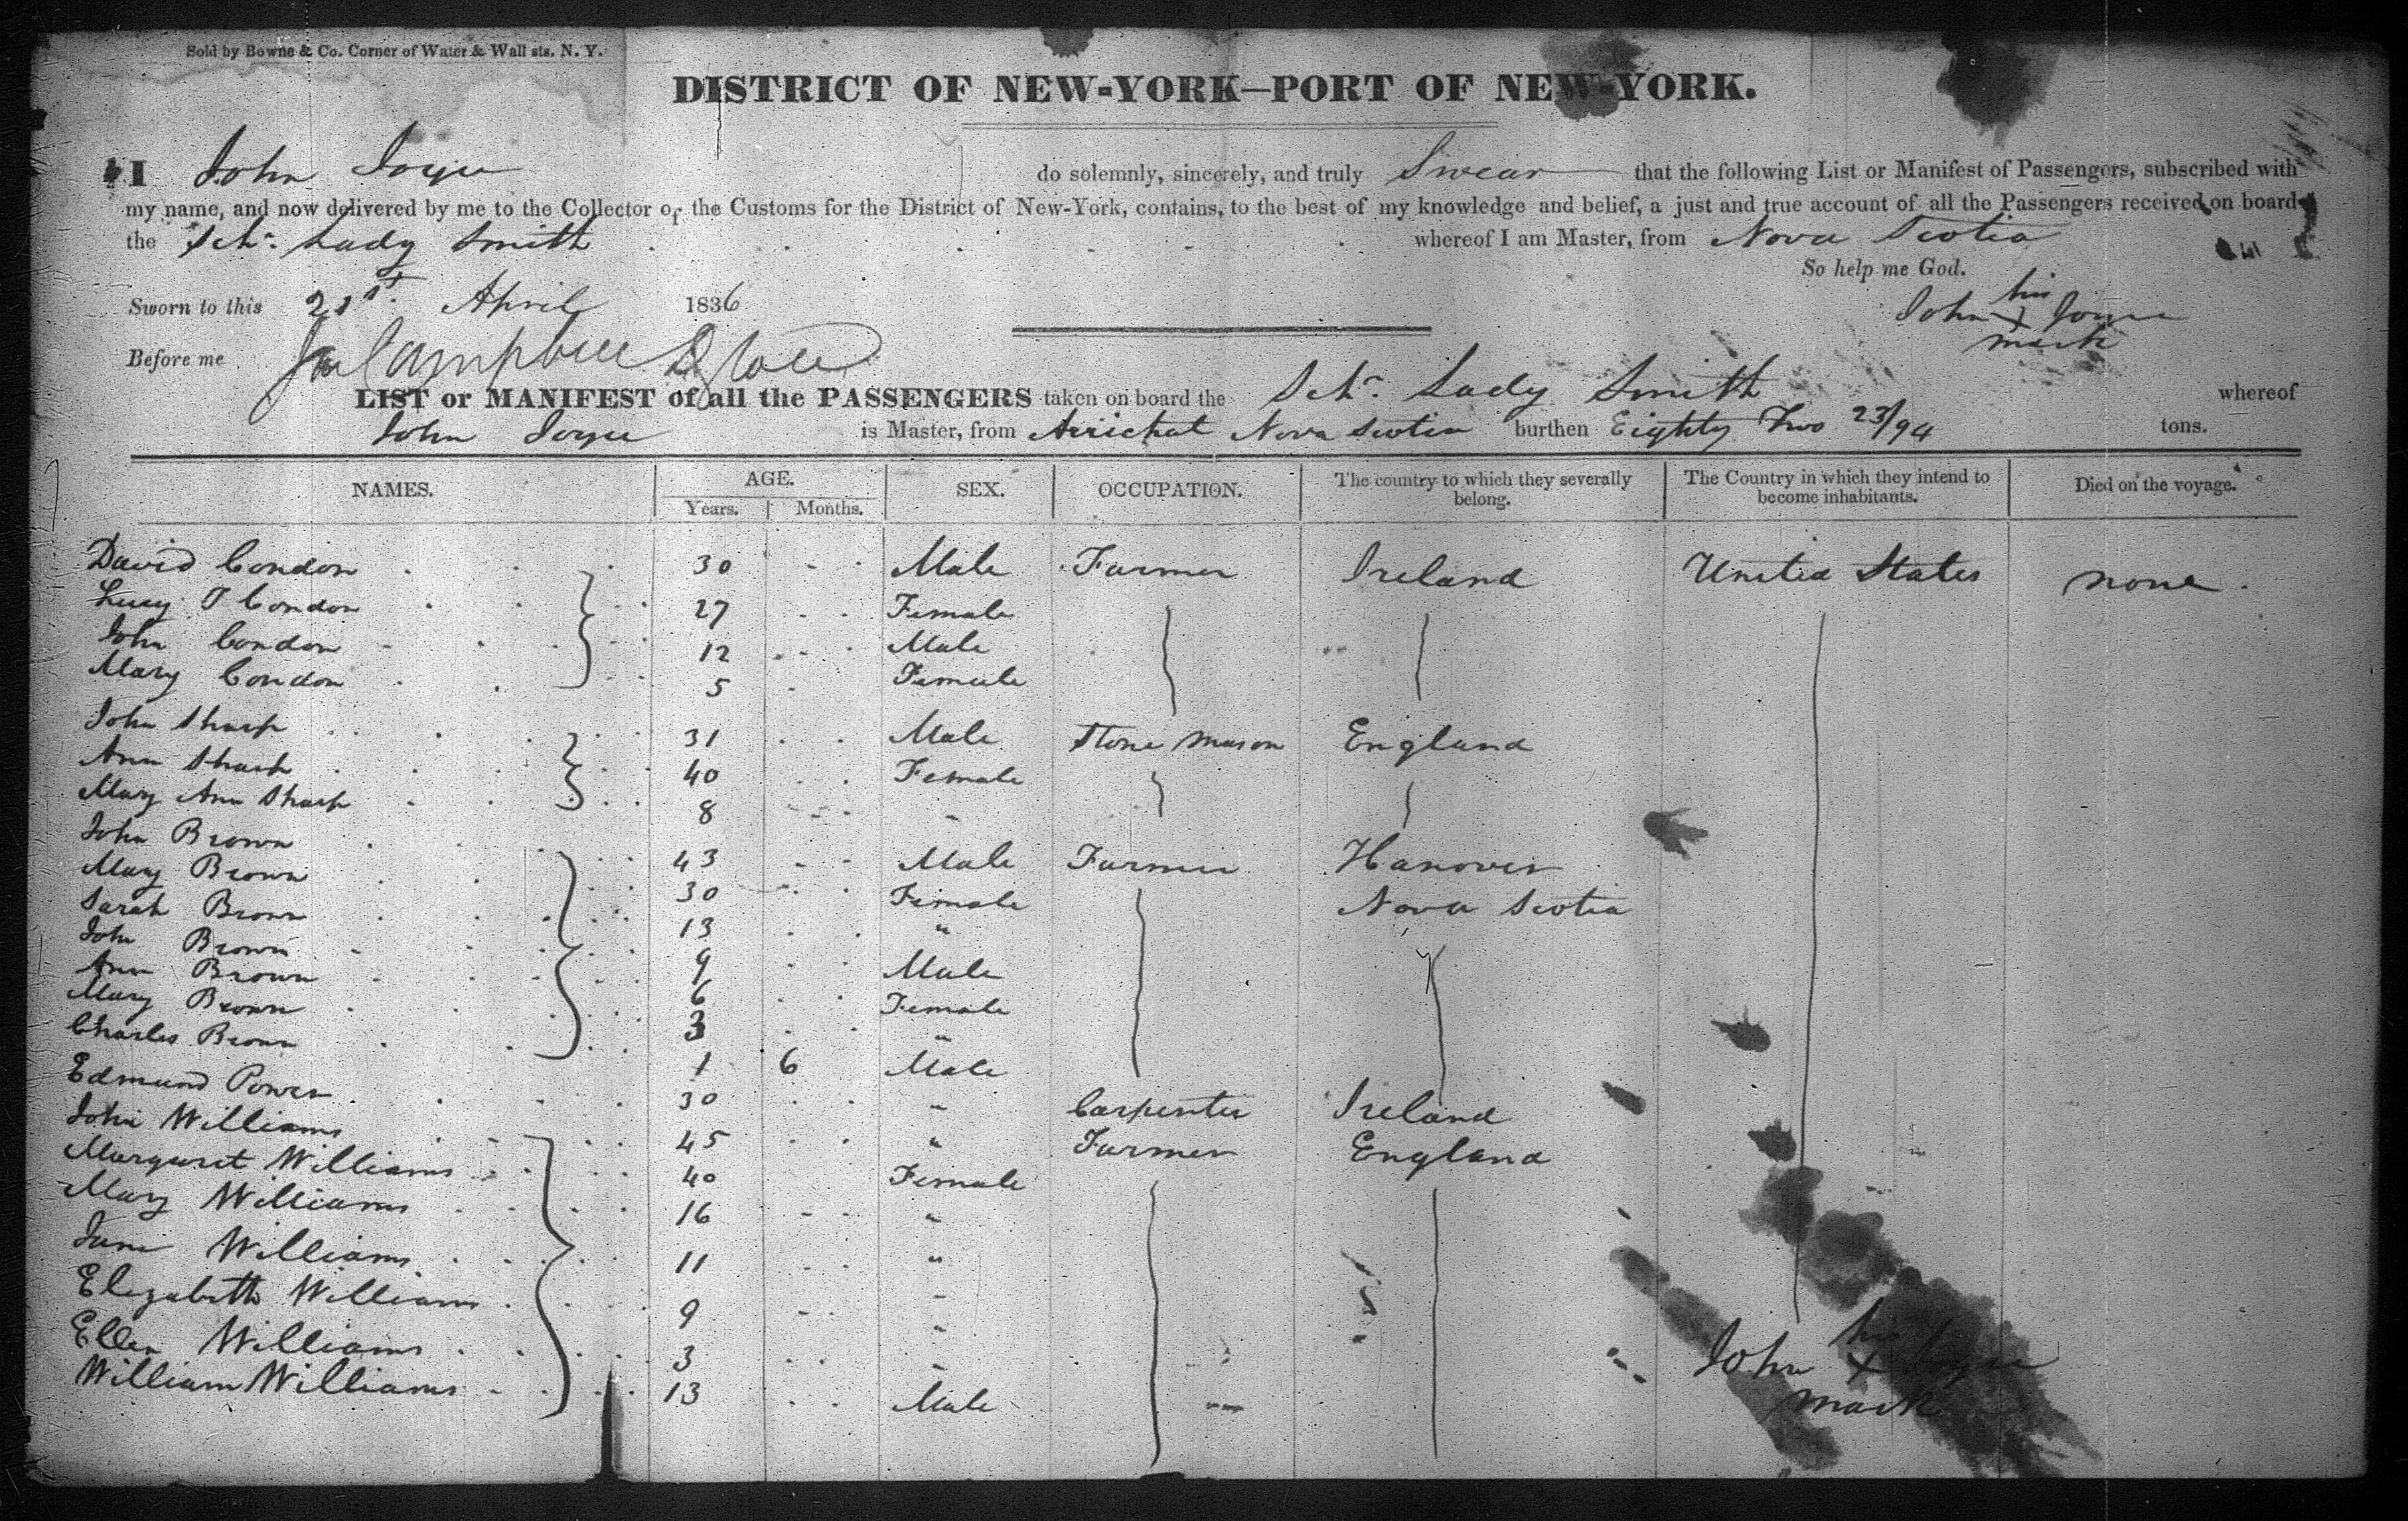 Sold by Bowne & Co. Corner of Water & Wall sts. N. Y.
DISTRICT OF NEW-YORK—PORT OF NEW-YORK.
I John Joyce do solemnly, sincerely, and truly Swear that the following List or Manifest of Passengers, subscribed with
my name, and now delivered by me to the Collector of the Customs for the District of New-York, contains, to the best of my knowledge and belief, a just and true account of all the Passengers received on board
the Schr. Lady Smith whereof I am Master, from Nova Scotia
So help me God.
Sworn to this 21st April 1836
his
John X Joyce
mark
Before me Campbell
LIST or MANIFEST of all the PASSENGERS taken on board the Schr. Lady Smith whereof
John Joyce is Master, from Arichat Nova Scotia burthen Eighty Two 23/94 tons.
NAMES. AGE. SEX. OCCUPATION. The country to which they severally belong. The Country in which they intend to become inhabitants. Died on the voyage.
Years. Months.
David Condon 30 Male Farmer Ireland United States none
Lucy T Condon 27 Female
John Condon 12 Male
Mary Condon 5 Female
John Sharp 31 Male Stone Mason England
Ann Sharp 40 Female
Mary Ann Sharp 8 "
John Brown 43 Male Farmer Hanover
Mary Brown 30 Female Nova Scotia
Sarah Brown 13 "
John Brown 9 Male
Ann Brown 6 Female
Mary Brown 3 "
Charles Brown 1 6 Male
Edmund Power 30 " Carpenter Ireland
John Williams 45 " Farmer England
Margaret Williams 40 Female
Mary Williams 16 "
Jane Williams 11 "
Elizabeth Williams 9 "
Ellen Williams 3 "
William Williams 13 Male
his
John X Joyce
mark